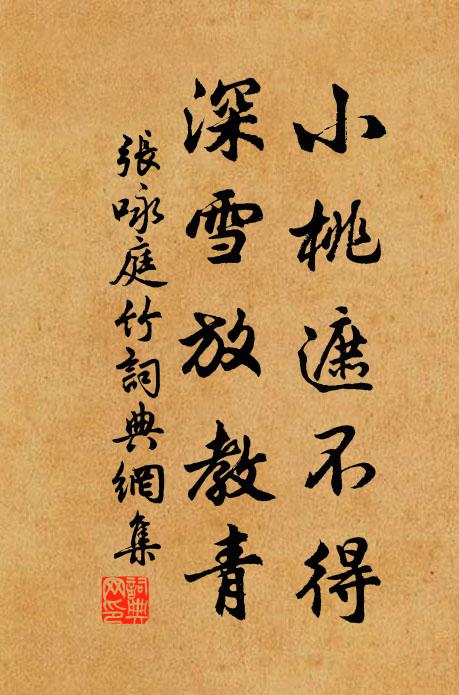 小桃遮不得
深雪放教青
張咏庭竹詞典網集
詞典网印